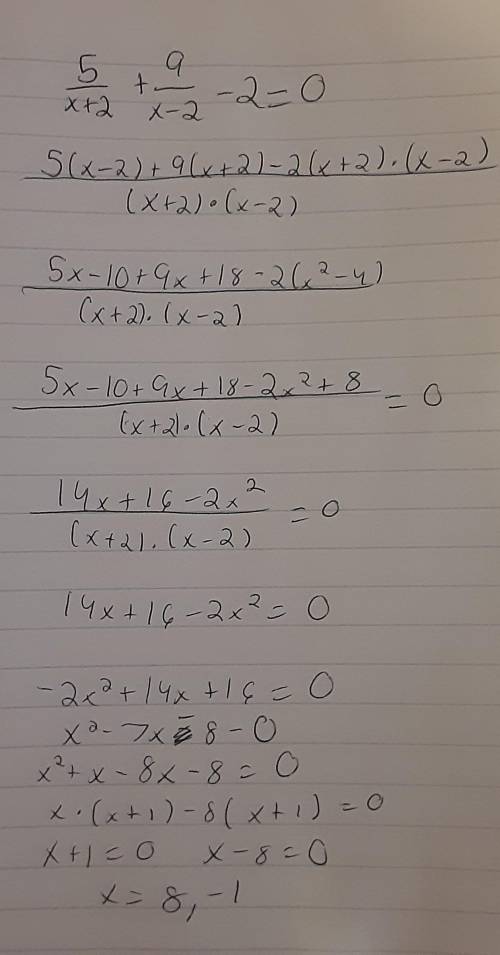 5/(x+2) + 9/(x-2) - 2 = 0
(5(x-2) + 9(x+2) - 2(x+2)·(x-2))/((x+2)·(x-2))
(5x - 10 + 9x + 18 - 2(x² - 4))/((x+2)·(x-2))
(5x - 10 + 9x + 18 - 2x² + 8)/((x+2)·(x-2)) = 0
(14x + 16 - 2x²)/((x+2)·(x-2)) = 0
14x + 16 - 2x² = 0
-2x² + 14x + 16 = 0
x² - 7x - 8 - 0
x² + x - 8x - 8 = 0
x·(x+1) - 8(x+1) = 0
x+1 = 0 x-8 = 0
x = 8, -1